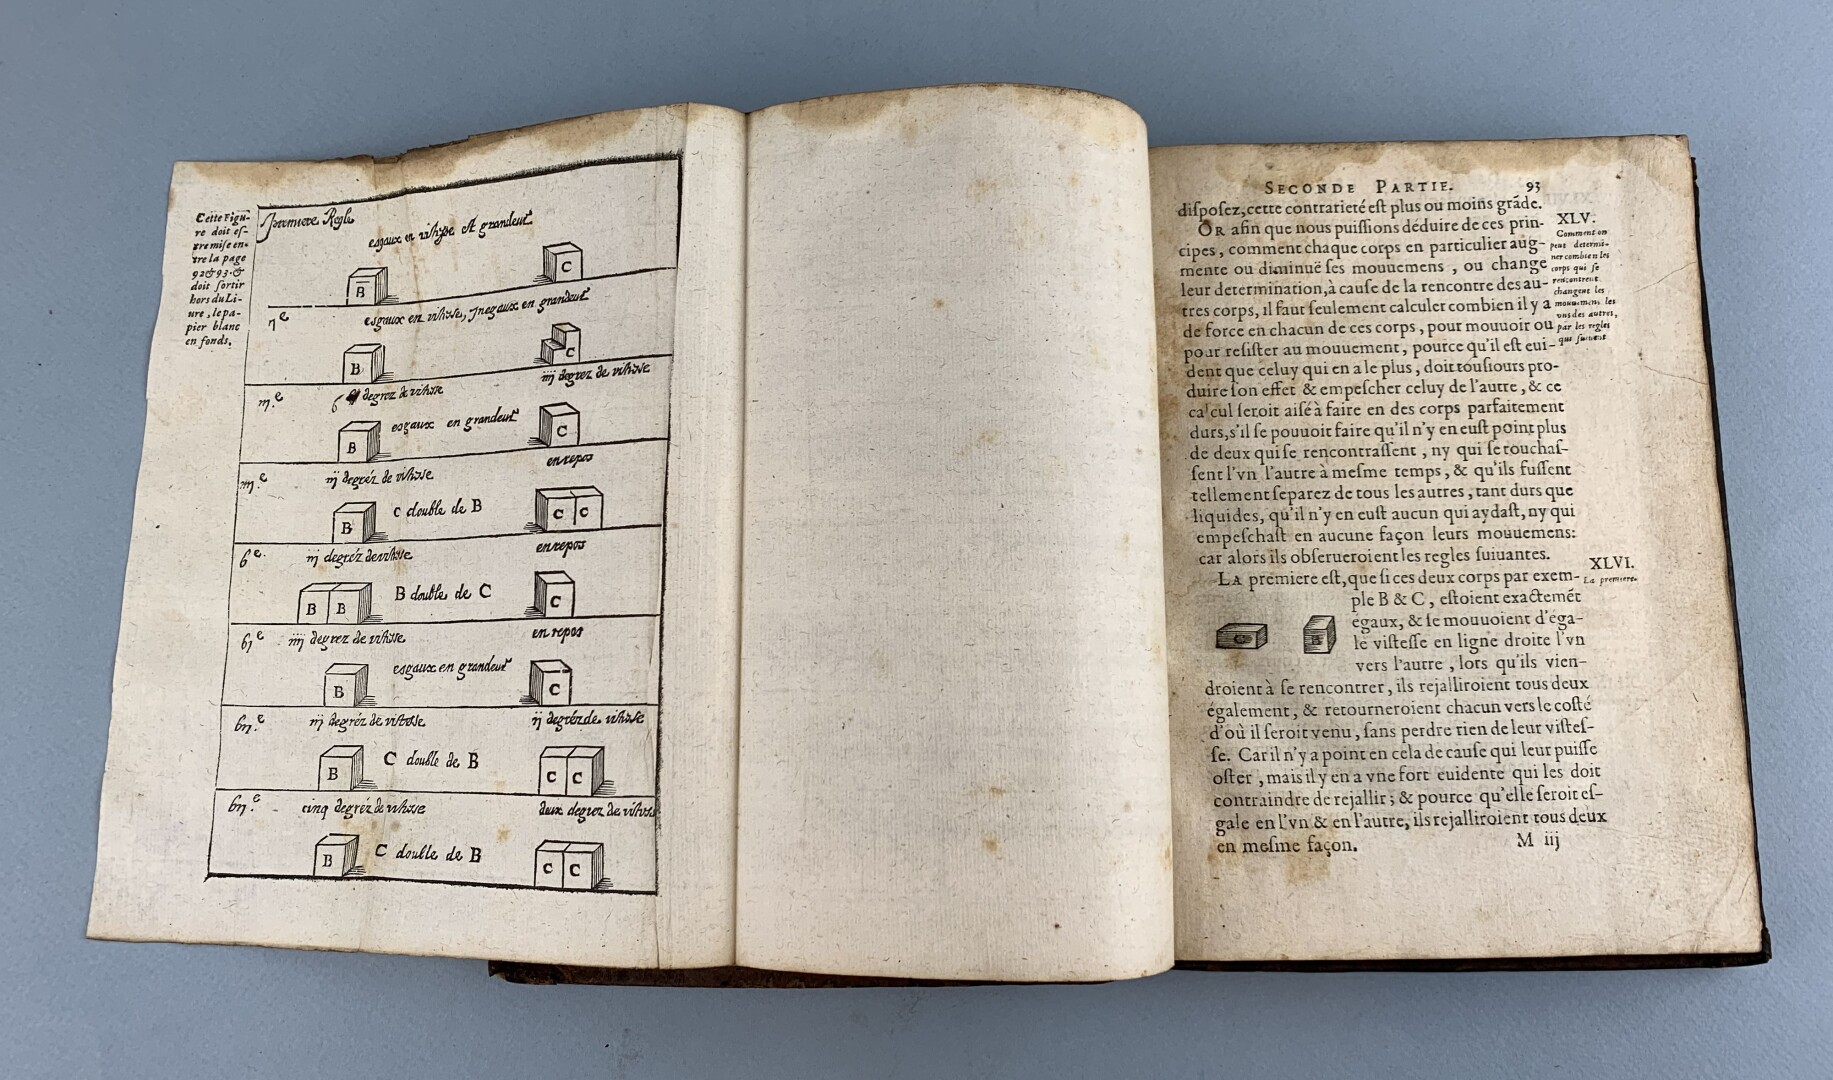 Cette Figu-
re doit es-
tre mise en-
tre la page
92 & 93. &
doit sortir
hors du Li-
ure, le pa-
pier blanc
en fonds.
premiere Regle
esgaux en vistesse et grandeur
B
C
esgaux en vistesse, jnegaux en grandeur
B
C
iiij degrez de vistesse
m.e
6
degrez de vistesse
esgaux en grandeur
B
C
en repos
iij degréz de vistesse
C double de B
B
C C
en repos
6e.
iij degréz de vistesse
B double de C
B B
C
en repos
6j e
iiij degrez de vistesse
esgaux en grandeur
B
C
iij degréz de vistesse
ij degréz de vistesse
C double de B
B
C C
cinq degréz de vistesse
deux degrez de vistesse
C double de B
B
C C
SECONDE PARTIE. 93
disposez, cette contrarieté est plus ou moins grãde.
OR afin que nous puissions déduire de ces prin-
cipes, comment chaque corps en particulier aug-
mente ou diminuë ses mouuemens, ou change
leur determination, à cause de la rencontre des au-
tres corps, il faut seulement calculer combien il y a
de force en chacun de ces corps, pour mouuoir ou
pour resister au mouuement, pource qu'il est eui-
dent que celuy qui en a le plus, doit tousiours pro-
duire son effet & empescher celuy de l'autre, & ce
calcul seroit aisé à faire en des corps parfaitement
durs, s'il se pouuoit faire qu'il n'y en eust point plus
de deux qui se rencontrassent, ny qui se touchas-
sent l'vn l'autre à mesme temps, & qu'ils fussent
tellement separez de tous les autres, tant durs que
liquides, qu'il n'y en eust aucun qui aydast, ny qui
empeschast en aucune façon leurs mouuemens:
car alors ils obserueroient les regles suiuantes.
XLV.
Comment on
peut determi-
ner combien les
corps qui se
rencontrent
changent les
mouuemens les
vns des autres,
par les regles
qui suiuent
LA premiere est, que si ces deux corps par exem-
ple B & C, estoient exactemẽt
égaux, & se mouuoient d'éga-
le vistesse en ligne droite l'vn
vers l'autre, lors qu'ils vien-
droient à se rencontrer, ils rejalliroient tous deux
également, & retourneroient chacun vers le costé
d'où il seroit venu, sans perdre rien de leur vistes-
se. Car il n'y a point en cela de cause qui leur puisse
oster, mais il y en a vne fort euidente qui les doit
contraindre de rejallir; & pource qu'elle seroit es-
gale en l'vn & en l'autre, ils rejalliroient tous deux
en mesme façon.
XLVI.
La premiere.
C
B
M iij